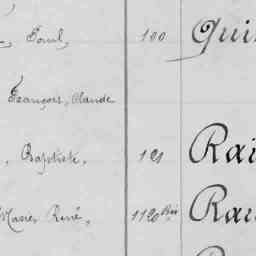 Paul, 100 Qui
François, Claude
Baptiste, 121 Rai
Marie René, 1120 Bis Rai